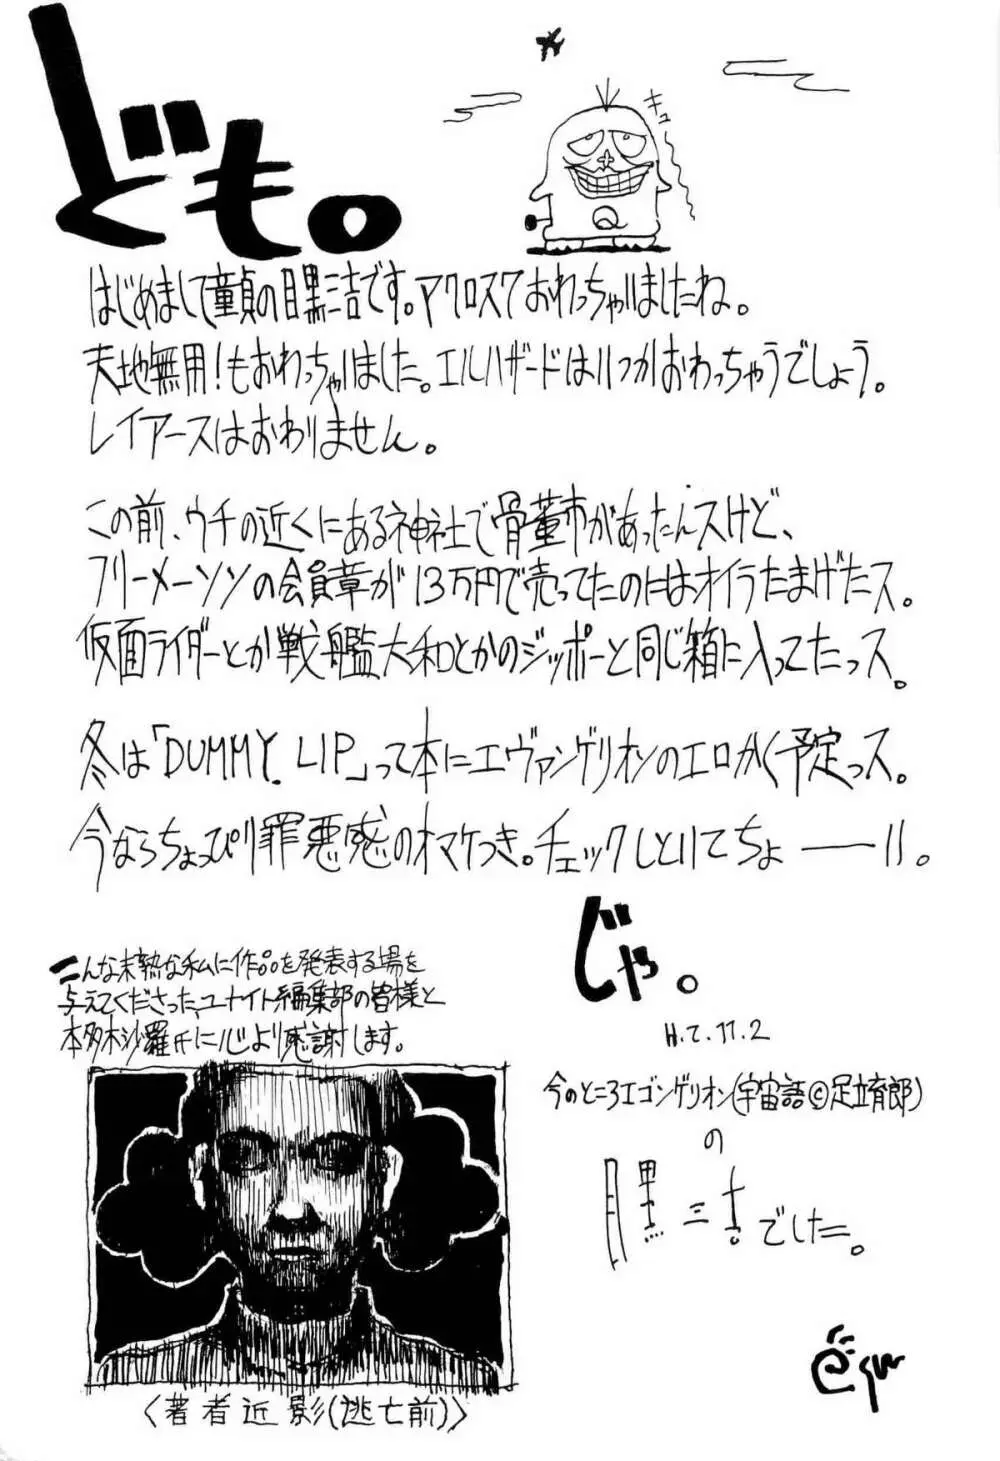 ども。
キュ
Q
はじめまして童貞の目黒三吉です。マクロス7おわっちゃいましたね。
天地無用!もおわっちゃいました。エルハザードはいつかおわっちゃうでしょう。
レイアースはおわりません。
この前、ウチの近くにある神社で骨董市があったんスけど、
フリーメーソンの会員章が13万円で売ってたのにはオイラたまげたス。
仮面ライダーとか戦艦大和とかのジッポーと同じ箱に入ってたっス。
冬は「DUMMY. LIP」って本にエヴァンゲリオンのエロかく予定っス。
今ならちょっぴり罪悪感のオマケつき。チェックしといてちょーーい。
じゃ。
こんな未熟な私に作品を発表する場を
与えてくださった、ユナイト編集部の皆様と
本多木沙羅氏に心より感謝します。
H.7.11.2
今のところエゴンゲリオン(宇宙語©足立育郎)
の
目黒三吉でした。
〈著者近影(逃亡前)〉